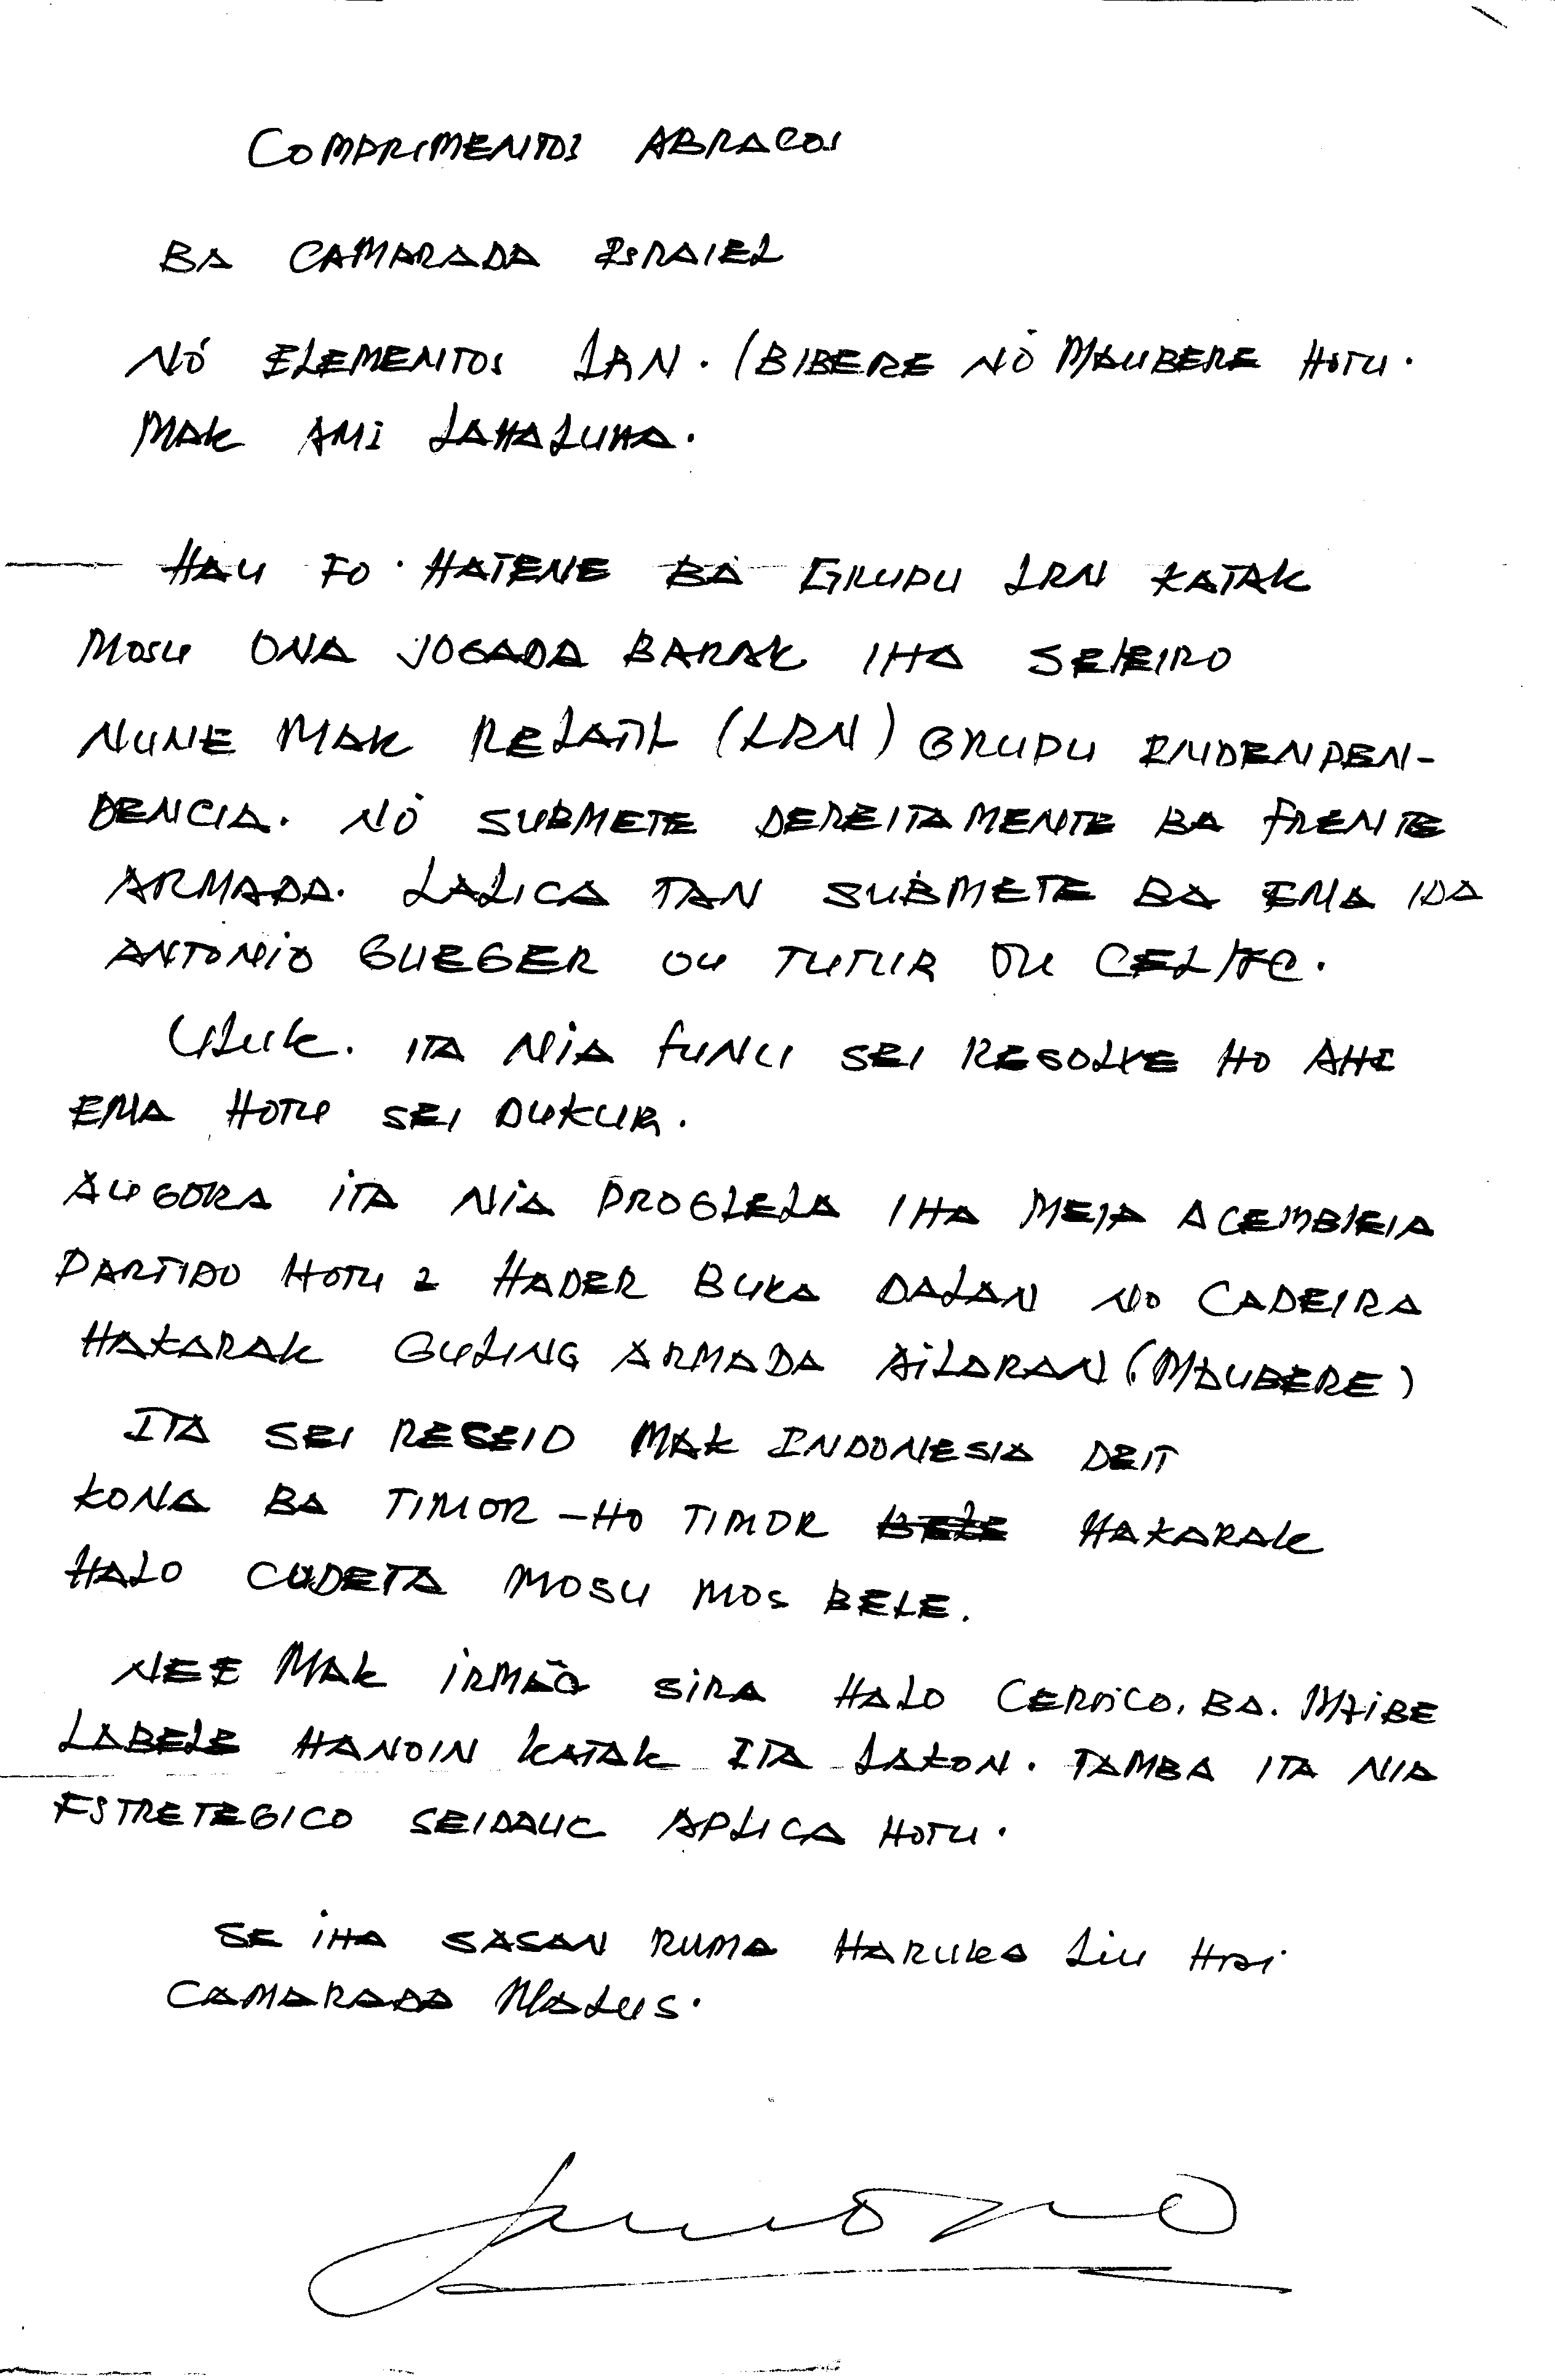 COMPRIMENTOS ABRACOS
BA CAMARADA ISRAIEL
NÓ ELEMENTOS LRN. (BIBERE NÓ MAUBERE HOTU.
MAK AMI LAHALUHA.
HAU FO HATENE BA GRUPU LRN KATAK
MOSU ONA JOGADA BARAK IHA
NUNE MAK (LRN) GRUPU INDENPEN-
DENCIA. NÓ SUBMETE DEREITAMENTE BA FRENTE
ARMADA. LALICA TAN SUBMETE BA EMA IDA
ANTONIO GUEGER OU TUTUR OU
ULUK. ITA NIA FUNU SEI RESOLVE HO AHI
EMA HOTU SEI DUKUR.
AUGORA ITA NIA PROGLELA IHA MEJA ACEMBLEIA
PARTIDO HOTU 2 HADER BUKA DALAN NO CADEIRA
HAKARAK GULING ARMADA AILARAN (MAUBERE)
ITA SEI RESEIO MAK INDONESIA DEIT
KONA BA TIMOR - HO TIMOR HAKARAK
HALO CUDETA MOSU MOS BELE.
NEE MAK IRMÃO SIRA HALO CERVICO. BA. MAIBE
LABELE HANOIN KATAK ITA LAKON. TAMBA ITA NIA
ESTRETEGICO SEIDAUC APLICA HOTU.
SE IHA SASAN RUMA HARUKA LIU HOSI
CAMARADA